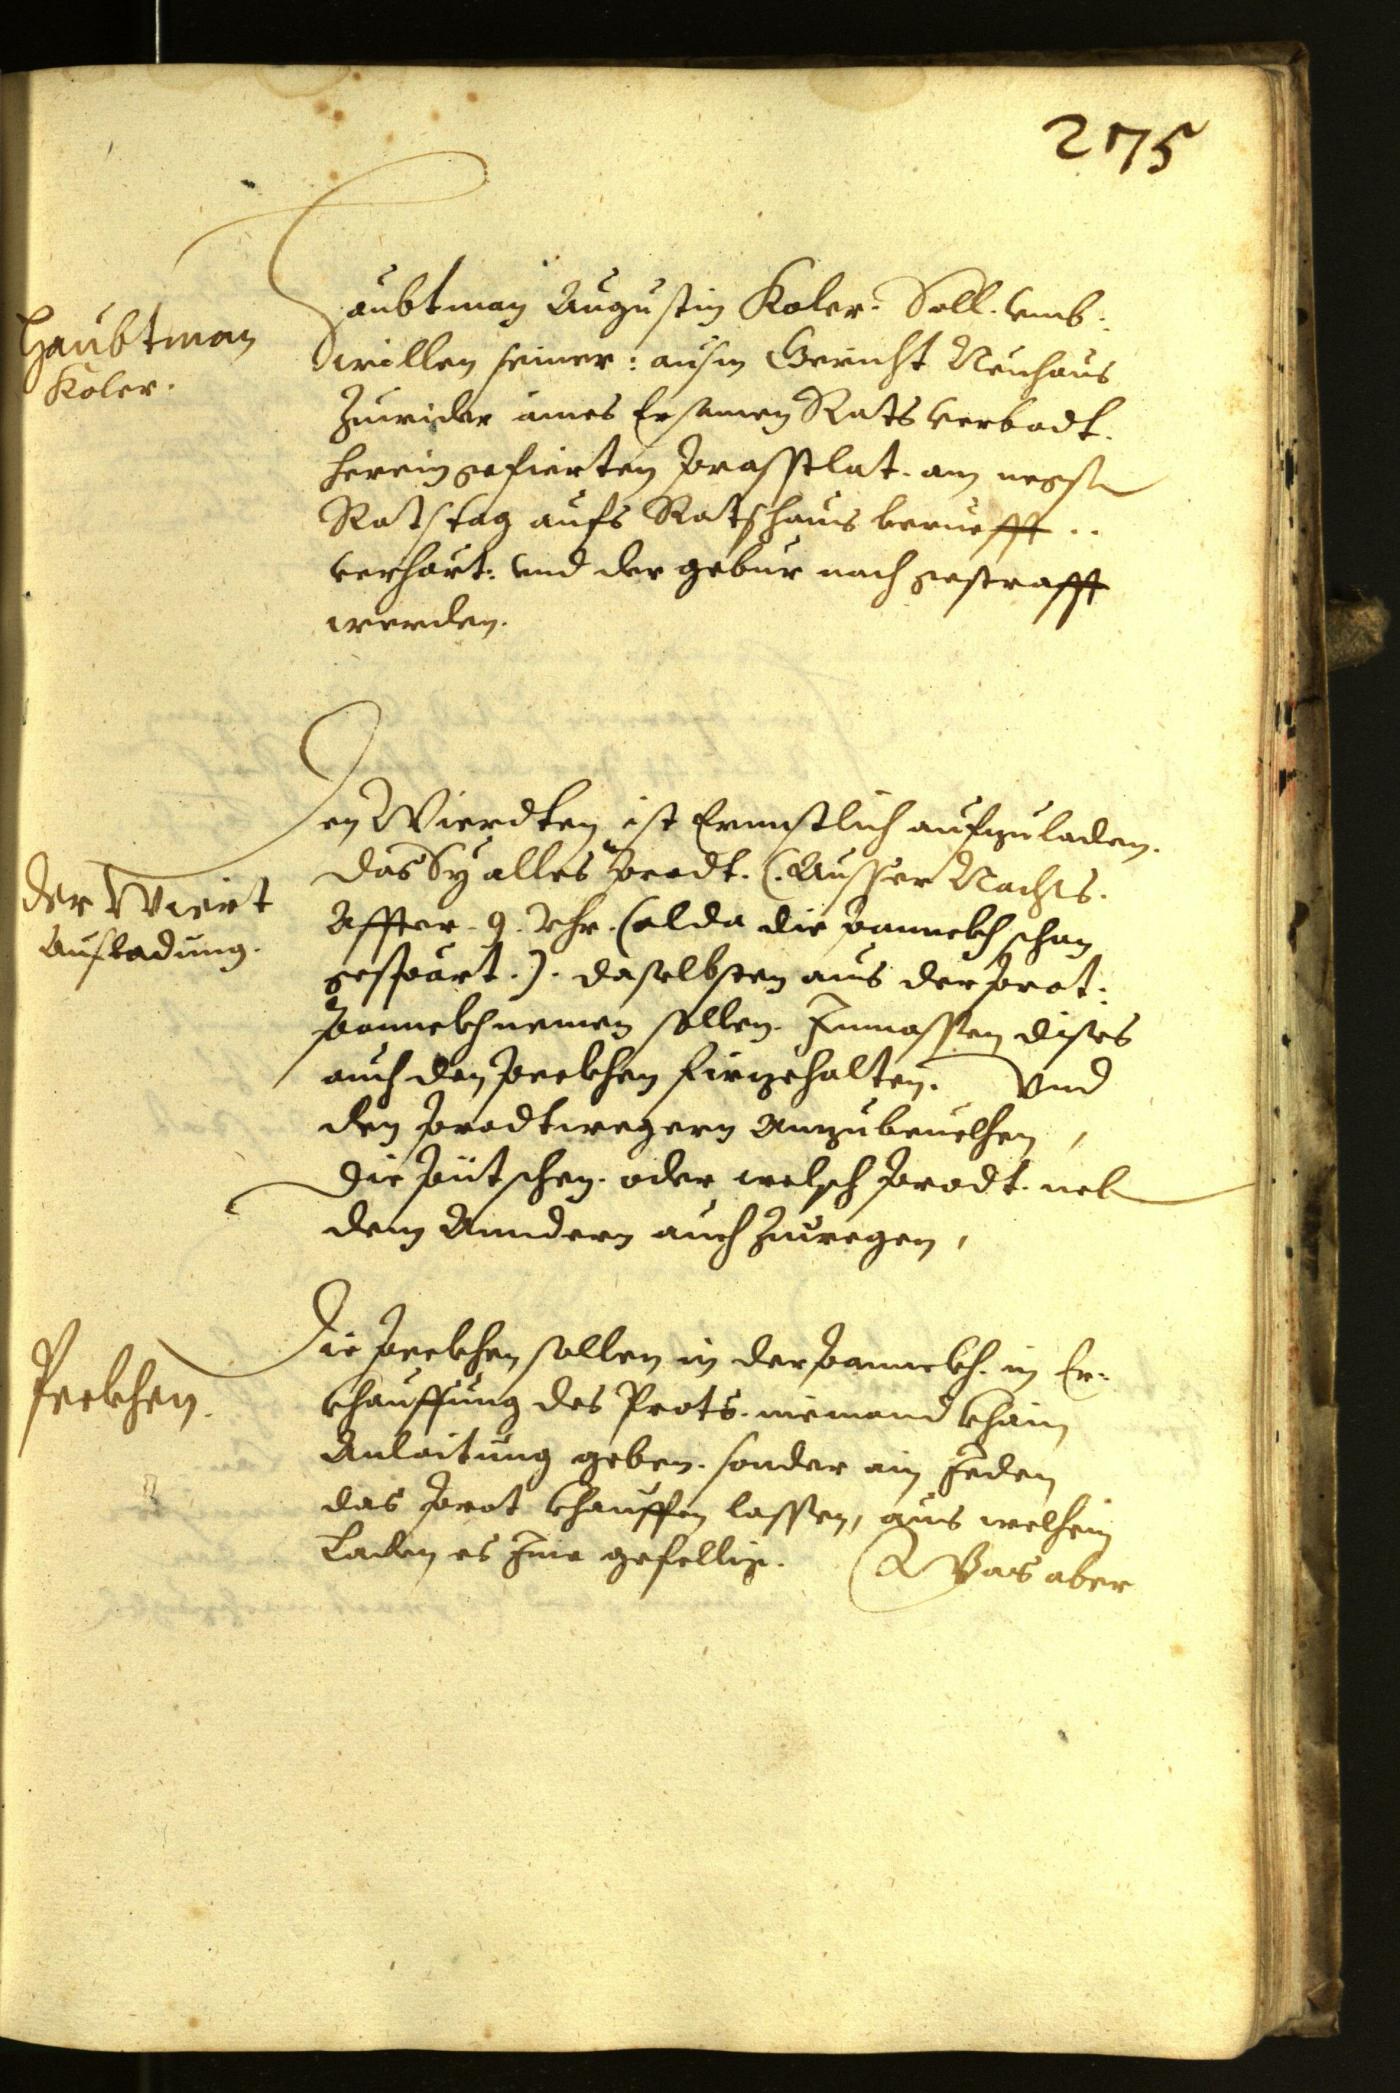 275
Haubtman
Koler.
Haubtman Augustin Koler. Soll. umb.
willen seiner: ausm Gericht Neuhaus
zuwider aines Ersamen Rats verbodt.
hereingefierten praschlat. am negsten
Ratstag aufs Ratshaus beruefft..
verhört: und der gebür nach gestrafft
werden.
Der Wiert
Aufladung.
Den Wierdten ist Ernnstlich aufzuladen.
das Sy alles Prodt. (: Ausser Nachts.
Affter. 9. Uhr. (alda die pannckh schon
gespärt.). daselbsten aus der prot:
pannckh nemen sollen. Inmassen dises
auch den peckhen firgehalten. Und
den prodtwegern Anzubeuelhen,
die pütschen. oder welsch prodt. neb
dem Anndern auch zuwegen,
Peckhen.
Die peckhen sollen in der pannckh. in Er-
khauffung des Prots. niemand khain
Anlaitung geben. sonder ain Jeden
das prot khauffen lassen, aus welhem
Laden es Ime gefellig. Was aber